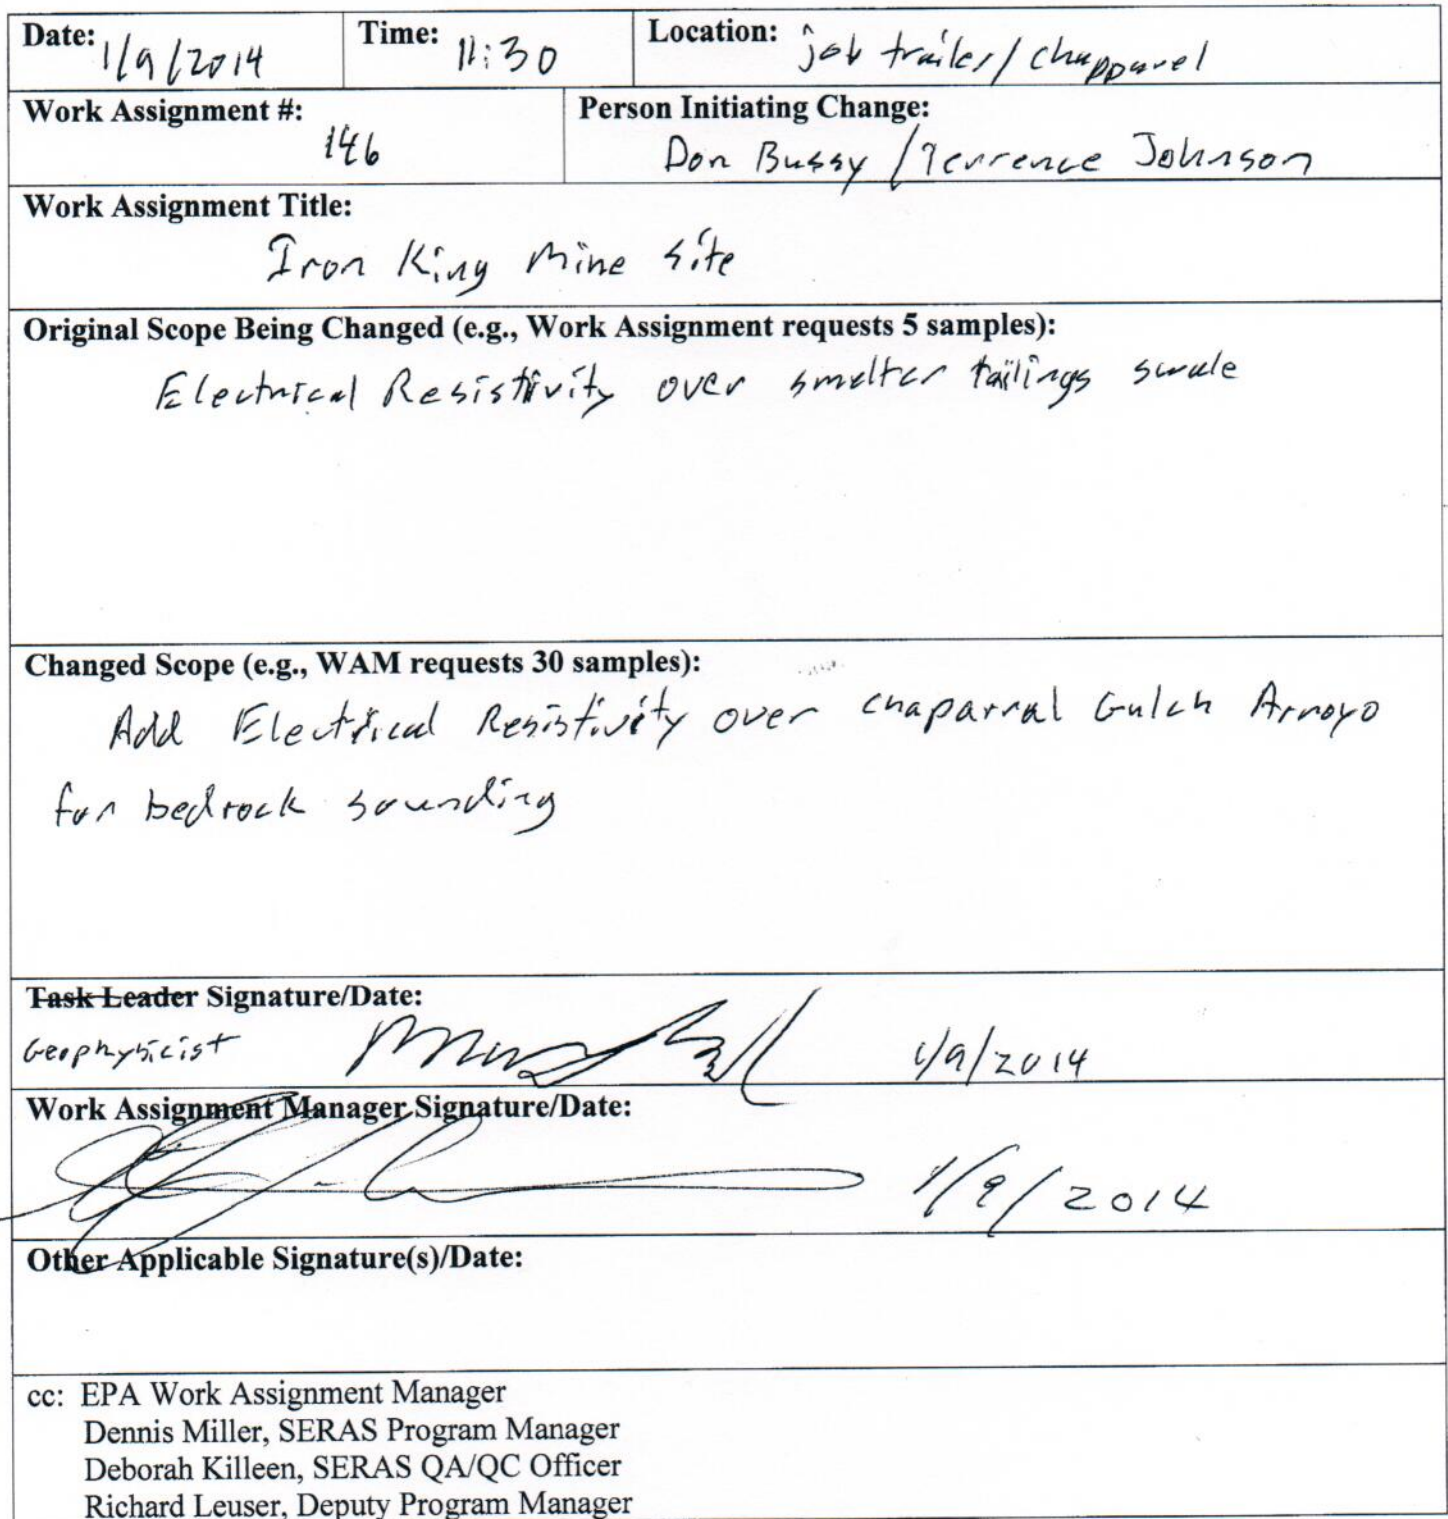 Date: 1/9/2014 Time: 11:30 Location: job trailer/chapparel
Work Assignment #: Person Initiating Change:
146 Don Bussy / Terrence Johnson
Work Assignment Title:
Iron King Mine Site
Original Scope Being Changed (e.g., Work Assignment requests 5 samples):
Electrical Resistivity over smelter tailings swale
Changed Scope (e.g., WAM requests 30 samples):
Add Electrical Resistivity over chaparral Gulch Arroyo
for bedrock sounding
Task Leader Signature/Date:
Geophysicist 1/9/2014
Work Assignment Manager Signature/Date:
1/9/2014
Other Applicable Signature(s)/Date:
cc: EPA Work Assignment Manager
Dennis Miller, SERAS Program Manager
Deborah Killeen, SERAS QA/QC Officer
Richard Leuser, Deputy Program Manager